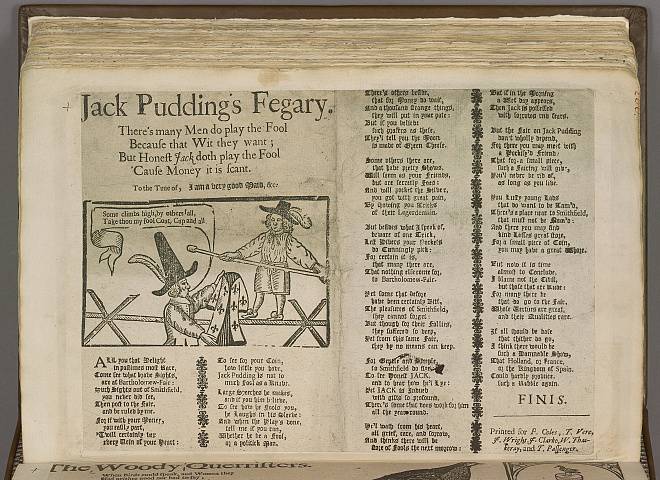 Jack Pudding's Fegary.
There's many Men do play the Fool
Because that Wit they want;
But Honest Jack doth play the Fool
'Cause Money it is scant.
To the Tune of, I am a very good Maid, &c.
Some climbs high, by others fall,
Take thou my fool Coat, Cap and all
ALL you that Delight
in pastimes most Rare,
Come see what brave Sights,
are at Bartholomew-Fair:
Such Sights out of Smithfield,
you never did see,
Then post to the Fair,
and be ruled by me.
For it with your Money,
you really part,
'Twill certainly tax
every Vein of your Heart:
To see for your Coin,
how little you have,
Jack Pudding is not so
much Fool as a Knave.
Large Speeches he makes,
and if you him believe,
To see how he fools you,
he Laughs in his Sleeve:
And when the Play's done,
tell me if you can,
Whether he be a Fool,
or a politick Man.
There's others beside,
that for Money do wait,
And a thousand strange things,
they will put in your pate:
But if you believe
such Jesters as these,
They'l tell you the Moon
is made of Green Cheese.
Some others there are,
that have pretty Shows,
Will seem as your Friends,
but are secretly Foes:
And will pocket the Silver,
you got with great pain,
By showing you Sleights
of their Legerdemain.
But besides what I speak of,
beware of one Trick,
Lest Divers your Pockets
do Cunningly pick:
For certain it is,
that many there are,
That nothing esteeme for,
to Bartholomew-Fair.
Yet some that before
have been certainly Bit,
The pleasures of Smithfield,
they cannot forget:
But though for their Follies,
they suffered so deep,
Yet from this same Fair,
they by no means can keep.
For Gentle and Simple,
to Smithfield do throng
To see Honest JACK,
and to hear how he'l Lye:
Yet JACK is Indued
with gifts so profound,
There's some that runs mad for him
all the year round.
He'l waft from his heart,
all grief, care, and sorrow,
And thinks there will be
store of Fools the next morrow:
But if in the Morning
a Wet day appears,
Then Jack is possessed
with sorrows and fears.
But the Fair on Jack Pudding
don't wholly depend,
For there you may meet with
a Pockify'd Friend:
That for a small piece,
such a Fairing will give,
You'l never be rid of,
as long as you live.
You Lusty young Lads
that do want to be Tam'd,
There's a place near to Smithfield,
that must not be Nam'd:
And there you may find
kind Lasses great store,
For a small piece of Coin,
you may have a great Whore.
But now it is time
almost to Conclude,
I blame not the Civil,
but those that are Rude:
For many there be
that do go to the Fair,
Whose Vertues are great,
and their Qualities rare.
If all should be base
that thither do go,
I think there would be
such a Damnable Show,
That Holland, or France,
or the Kingdom of Spain,
Could hardly produce
such a Rabble again.
FINIS.
Printed for F. Coles, T. Vere,
J. Wright, J. Clarke, W. Thackeray, and T. Passenger.
The Woody Querristers.